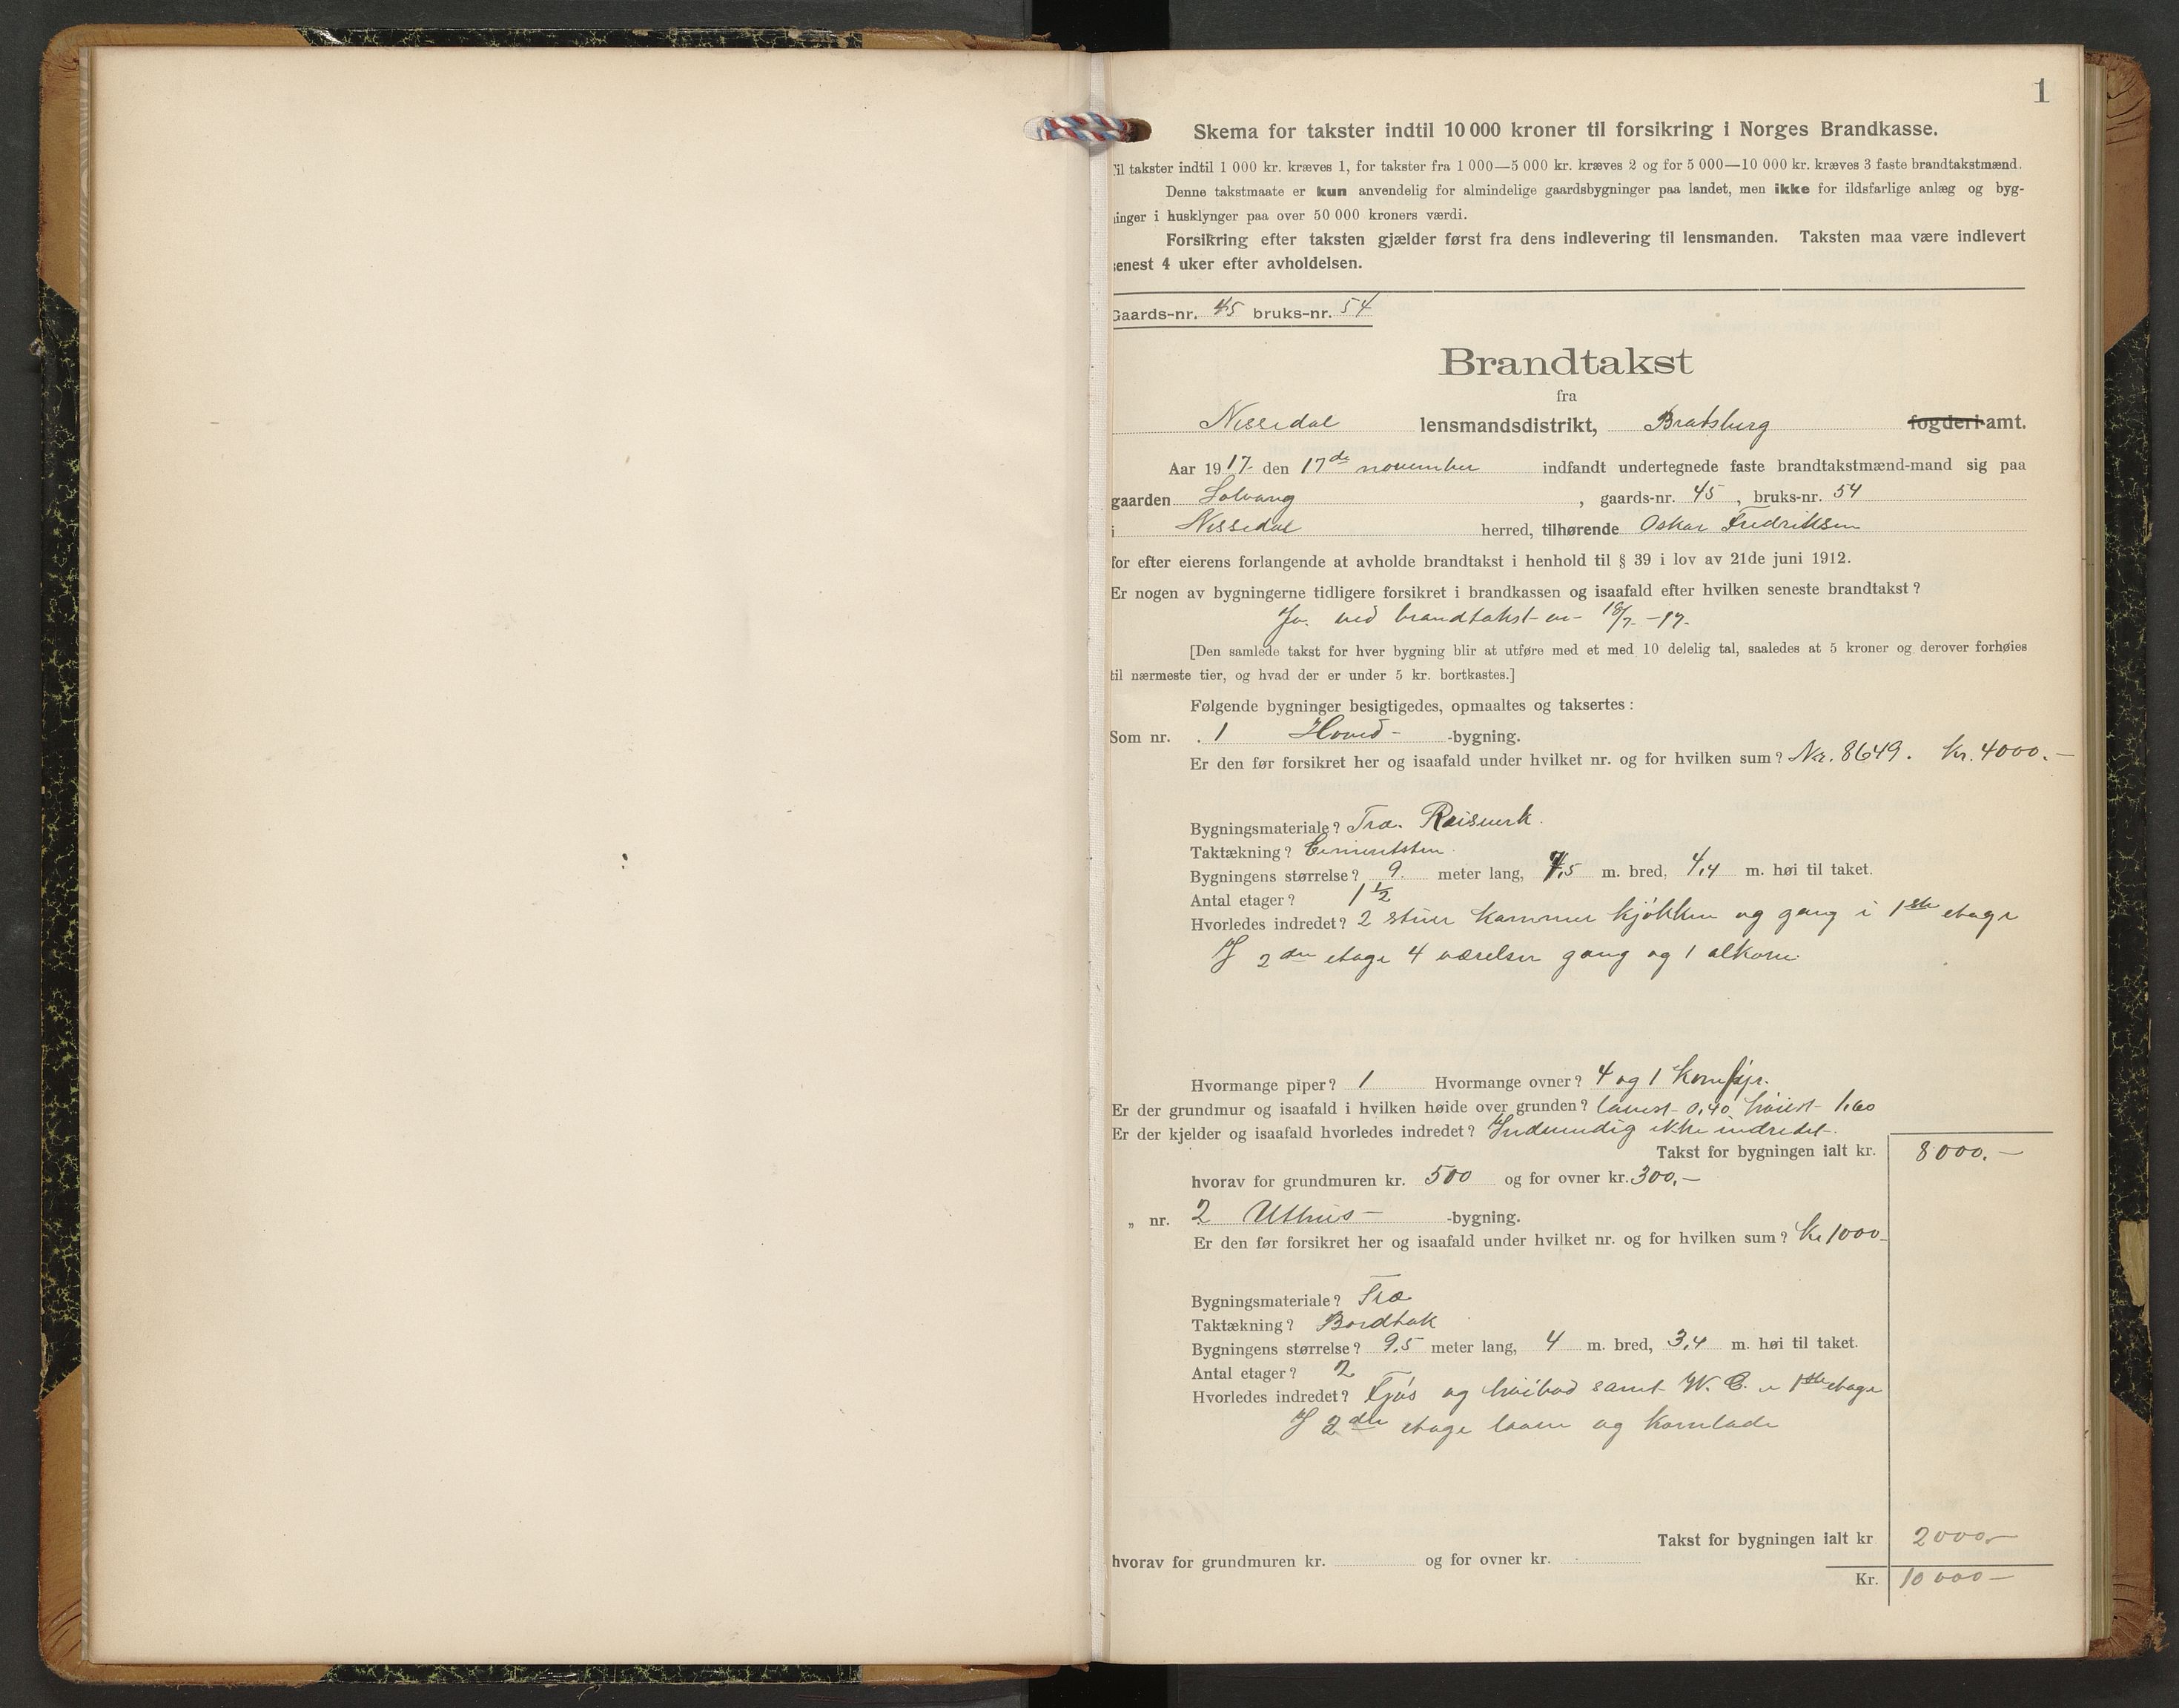 1
Skema for takster indtil 10 000 kroner til forsikring i Norges Brandkasse.
Til takster indtil 1 000 kr. kræves 1, for takster fra 1 000—5 000 kr. kræves 2 og for 5 000—10 000 kr. kræves 3 faste brandtakstmænd.
Denne takstmaate er kun anvendelig for almindelige gaardsbygninger paa landet, men ikke for ildsfarlige anlæg og byg-
ninger i husklynger paa over 50 000 kroners værdi.
Forsikring efter taksten gjælder først fra dens indlevering til lensmanden. Taksten maa være indlevert
senest 4 uker efter avholdelsen.
Gaards-nr. 45 bruks-nr. 54
Brandtakst
fra
Nissedal lensmandsdistrikt, Bratsberg fogderi-amt.
Aar 1917 den 17de november indfandt undertegnede faste brandtakstmænd-mand sig paa
gaarden Solvang, gaards-nr. 45, bruks-nr. 54
i Nissedal herred, tilhørende Oskar Fredriksen
for efter eierens forlangende at avholde brandtakst i henhold til § 39 i lov av 21de juni 1912.
Er nogen av bygningerne tidligere forsikret i brandkassen og isaafald efter hvilken seneste brandtakst?
Ja. ved brandtakst av 18/7 -17.
[Den samlede takst for hver bygning blir at utføre med et med 10 delelig tal, saaledes at 5 kroner og derover forhøies
til nærmeste tier, og hvad der er under 5 kr. bortkastes.]
Følgende bygninger besigtigedes, opmaaltes og taksertes:
Som nr. 1 Hoved- -bygning.
Er den før forsikret her og isaafald under hvilket nr. og for hvilken sum? Nr. 8649. Kr. 4000.—
Bygningsmateriale? Træ. Reisverk.
Taktækning? Cementsten
Bygningens størrelse? 9 meter lang, 7,5 m. bred, 4,4 m. høi til taket.
Antal etager? 1 1/2
Hvorledes indredet? 2 stuer kammer kjøkken og gang i 1ste etage
I 2den etage 4 værelser gang og 1 alkove.
Hvormange piper? 1 Hvormange ovner? 4 og 1 komfyr.
Er der grundmur og isaafald i hvilken høide over grunden? lavest 0,40 høiest 1,60
Er der kjelder og isaafald hvorledes indredet? Indvendig ikke indredet.
Takst for bygningen ialt kr. 8000.—
hvorav for grundmuren kr. 500 og for ovner kr. 300.—
„ nr. 2 Uthus- -bygning.
Er den før forsikret her og isaafald under hvilket nr. og for hvilken sum? Kr 1000-
Bygningsmateriale? Træ
Taktækning? Bordtak
Bygningens størrelse? 9,5 meter lang, 4 m. bred, 3,4 m. høi til taket.
Antal etager? 2
Hvorledes indredet? Fjøs og samt W. C. i 1ste etage
I 2den etage laave og kornlade
Takst for bygningen ialt kr 2000.-
hvorav for grundmuren kr. og for ovner kr.
Kr. 10000—